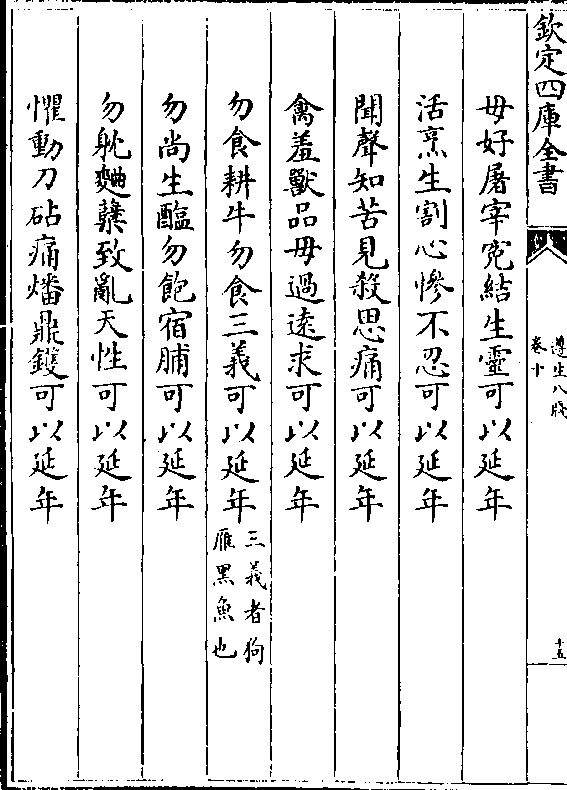 欽定四庫全書
遵生八牋
卷十
十五
毋好屠宰寃結生靈可以延年
活烹生割心慘不忍可以延年
聞聲知苦見殺思痛可以延年
禽羞獸品毋過遠求可以延年
勿食耕牛勿食三義可以延年
三義者狗
雁黑魚也
勿尚生醢勿飽宿脯可以延年
勿躭麯糵致亂天性可以延年
懼動刀砧痛燔鼎鑊可以延年